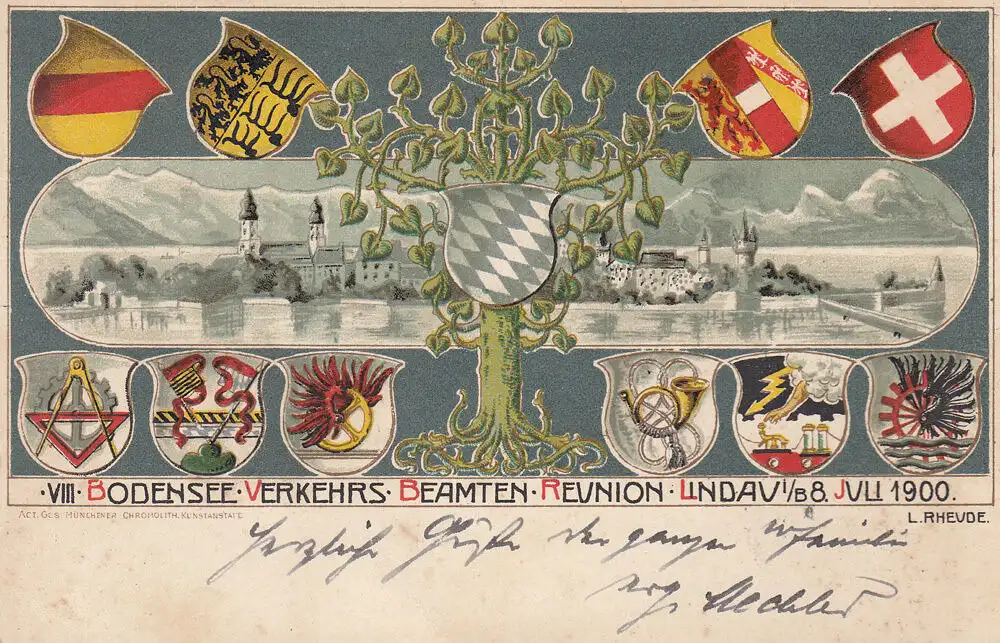 ·VIII· BODENSEE·VERKEHRS·BEAMTEN·REUNION·LINDAU i/B 8. JULI 1900.
ACT. GES. MÜNCHENER CHROMOLITH. KUNSTANSTALT
L. RHEUDE.
Herzliche Grüße der ganzen Familie